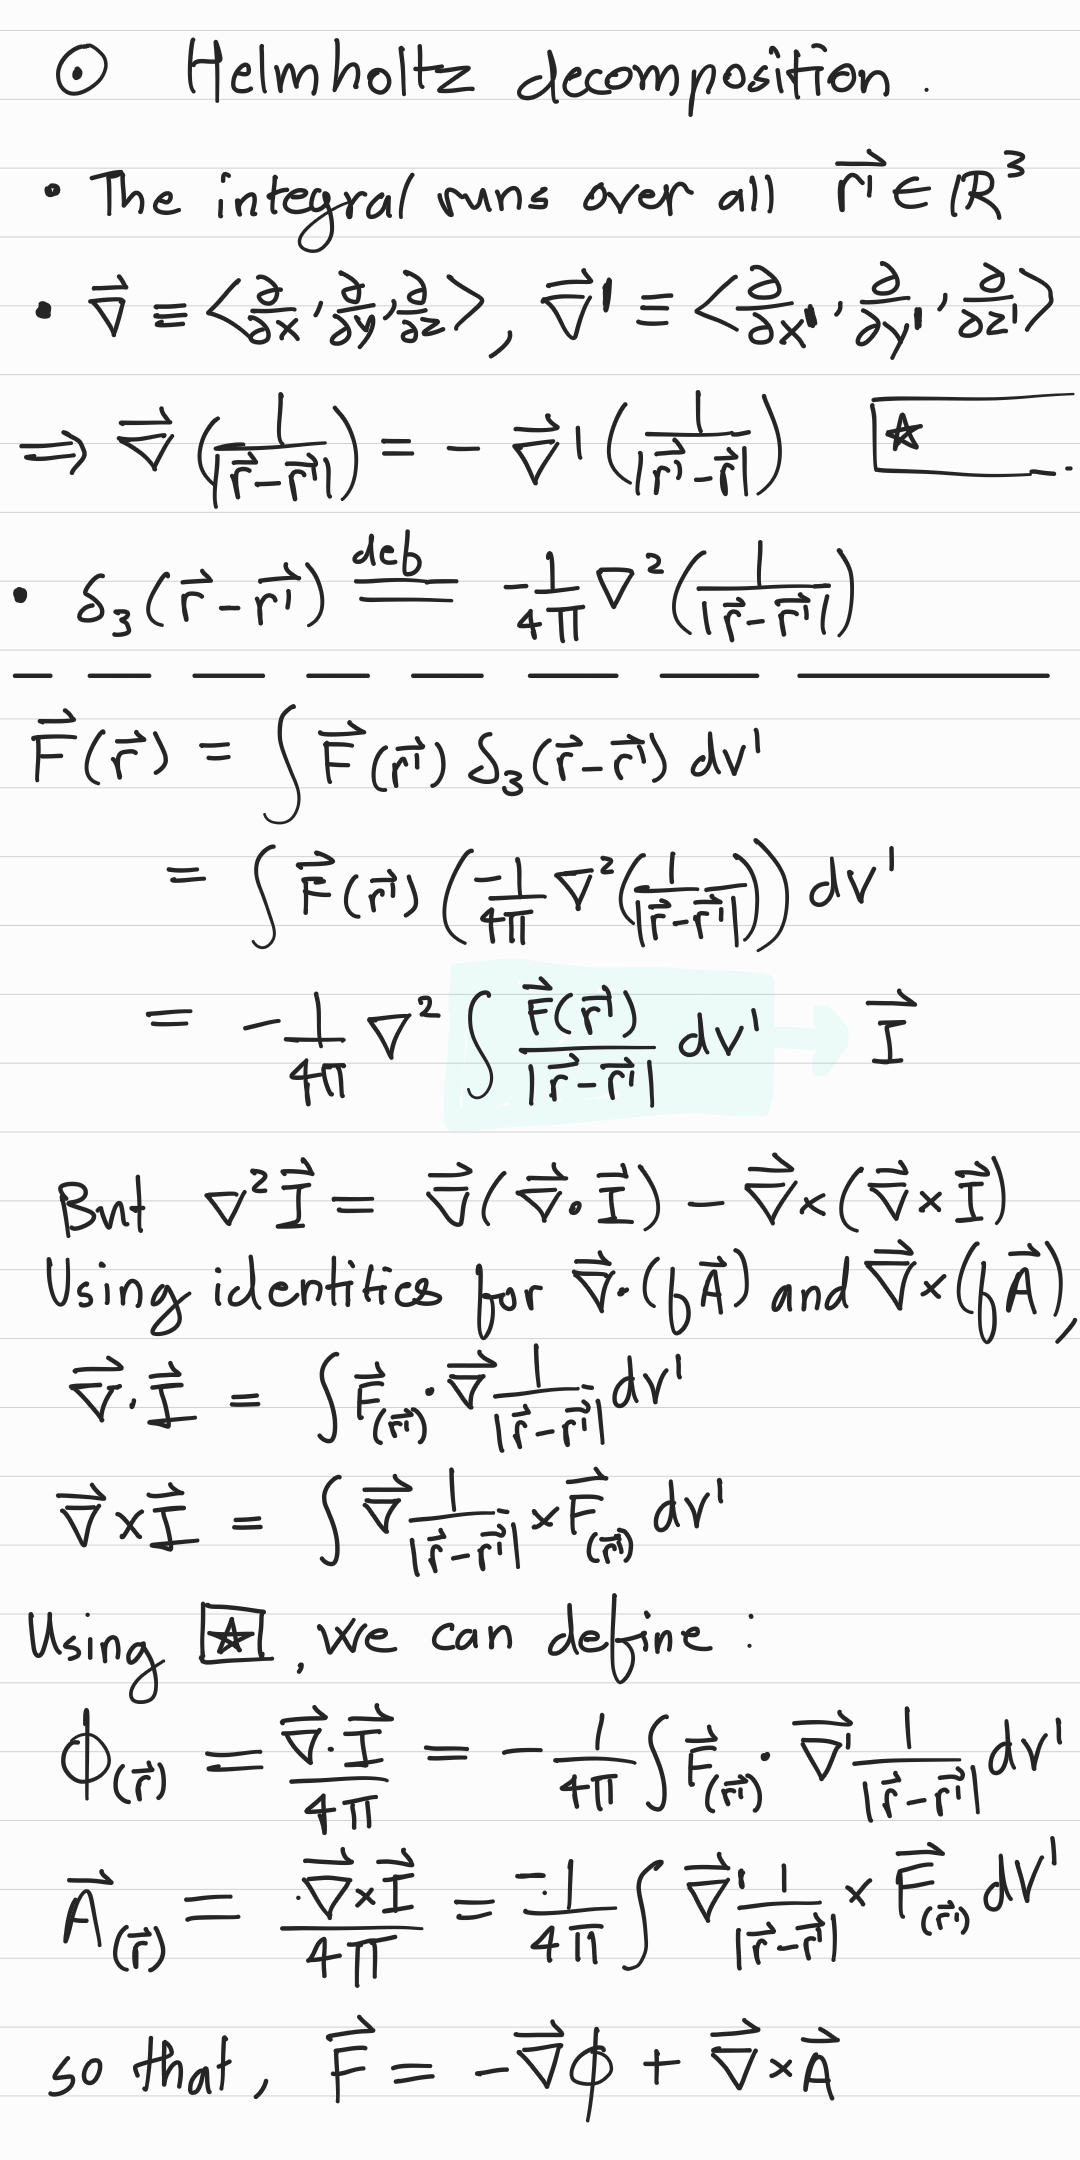 ⊙ Helmholtz decomposition.
• The integral runs over all $\vec{r'} \in \mathbb{R}^3$
• $\vec{\nabla} \equiv \langle \frac{\partial}{\partial x}, \frac{\partial}{\partial y}, \frac{\partial}{\partial z} \rangle, \vec{\nabla}' \equiv \langle \frac{\partial}{\partial x'}, \frac{\partial}{\partial y'}, \frac{\partial}{\partial z'} \rangle$
$\Rightarrow \vec{\nabla} \left( \frac{1}{|\vec{r}-\vec{r'}|} \right) = - \vec{\nabla}' \left( \frac{1}{|\vec{r'}-\vec{r}|} \right)$ ☆
• $\delta_3 (\vec{r}-\vec{r'}) \overset{\text{def}}{=} \frac{-1}{4\pi} \nabla^2 \left( \frac{1}{|\vec{r}-\vec{r'}|} \right)$
$\vec{F}(\vec{r}) = \int \vec{F}(\vec{r'}) \delta_3 (\vec{r}-\vec{r'}) dv'$
$= \int \vec{F}(\vec{r'}) \left( \frac{-1}{4\pi} \nabla^2 \left( \frac{1}{|\vec{r}-\vec{r'}|} \right) \right) dv'$
$= -\frac{1}{4\pi} \nabla^2 \int \frac{\vec{F}(\vec{r'})}{|\vec{r}-\vec{r'}|} dv' \rightarrow \vec{I}$
But $\nabla^2 \vec{I} = \vec{\nabla}(\vec{\nabla} \cdot \vec{I}) - \vec{\nabla} \times (\vec{\nabla} \times \vec{I})$
Using identities for $\vec{\nabla} \cdot (f\vec{A})$ and $\vec{\nabla} \times (f\vec{A})$,
$\vec{\nabla} \cdot \vec{I} = \int \vec{F}_{(\vec{r'})} \cdot \vec{\nabla} \frac{1}{|\vec{r}-\vec{r'}|} dv'$
$\vec{\nabla} \times \vec{I} = \int \vec{\nabla} \frac{1}{|\vec{r}-\vec{r'}|} \times \vec{F}_{(\vec{r'})} dv'$
Using ☆, we can define :
$\phi_{(\vec{r})} = \frac{\vec{\nabla} \cdot \vec{I}}{4\pi} = -\frac{1}{4\pi} \int \vec{F}_{(\vec{r'})} \cdot \vec{\nabla}' \frac{1}{|\vec{r}-\vec{r'}|} dv'$
$\vec{A}_{(\vec{r})} = \frac{\vec{\nabla} \times \vec{I}}{4\pi} = \frac{-1}{4\pi} \int \vec{\nabla}' \frac{1}{|\vec{r}-\vec{r'}|} \times \vec{F}_{(\vec{r'})} dV'$
so that, $\vec{F} = -\vec{\nabla}\phi + \vec{\nabla} \times \vec{A}$